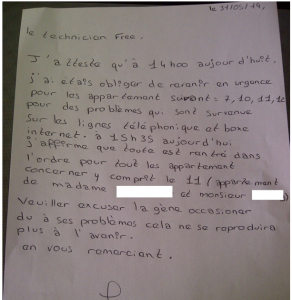 le 31/05/19,
le technician Free.
J'atteste qu'à 14h00 aujord'huit.
j'ai etais obliger de revenir en urgence
pour les appartement suivant = 7, 10, 11, 12
pour des problèmes qui sont survenue
sur les lignes téléphonique et boxe
internet. à 15h35 aujourd'hui
j'affirme que toute est rentré dans
l'ordre pour tout les appartement
concerner y comprit le 11 / appartement
de madame et monsieur
Veuiller excuser la gène occasioner
du à ses problèmes cela ne se reproduira
plus à l'avenir.
en vous remerciant.